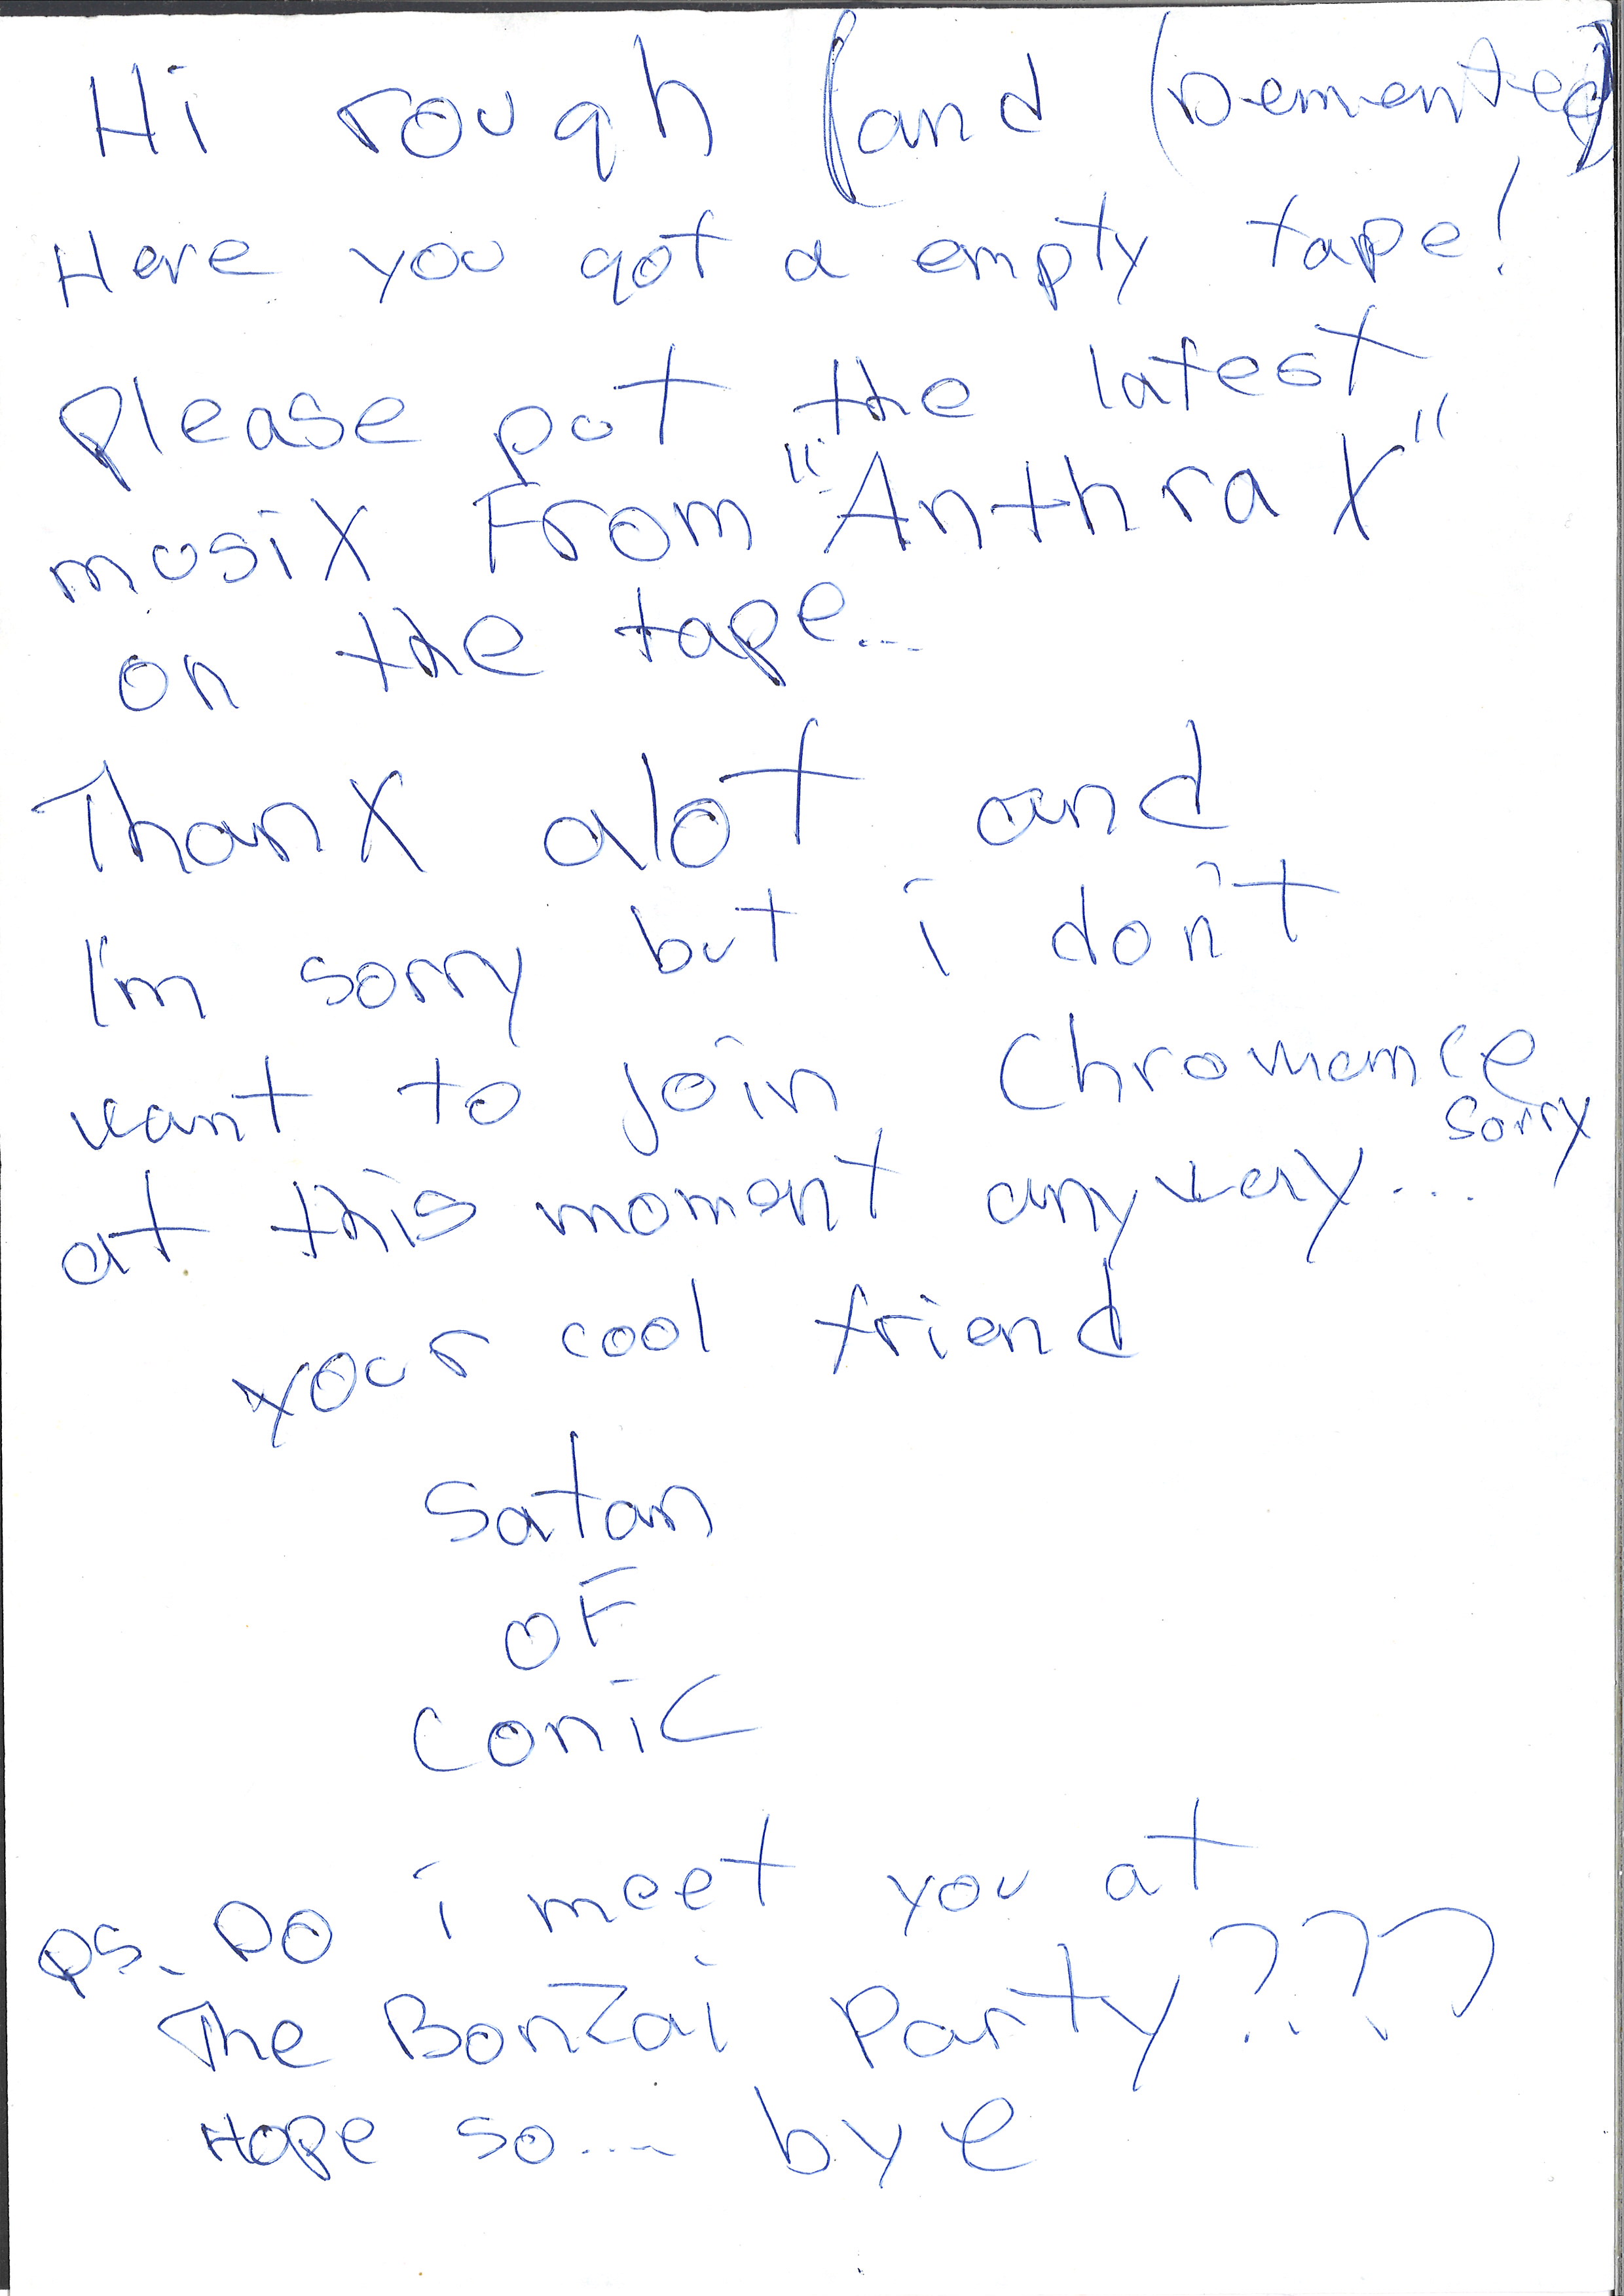 Hi rough (and (Demented)
Here you got a empty tape!
Please put the latest
musiX From "AnthraX"
on the tape...
ThanX alot and
I'm sorry but i don't
want to join Chromance
sorry
at this moment anyway...
your cool friend
Satan
OF
Conic
PS. Do i meet you at
The BonZai Party???
Hope so.... bye